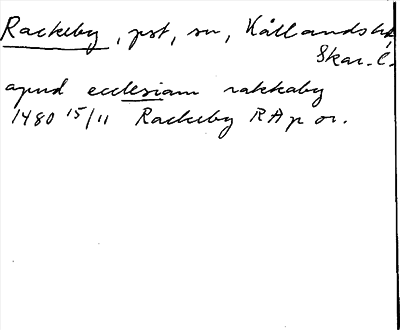 Rackeby, pst, sn, Kållands hd,
Skar. l.
apud ecclesiam rakkaby
1480 15/11 Rackeby RAp or.